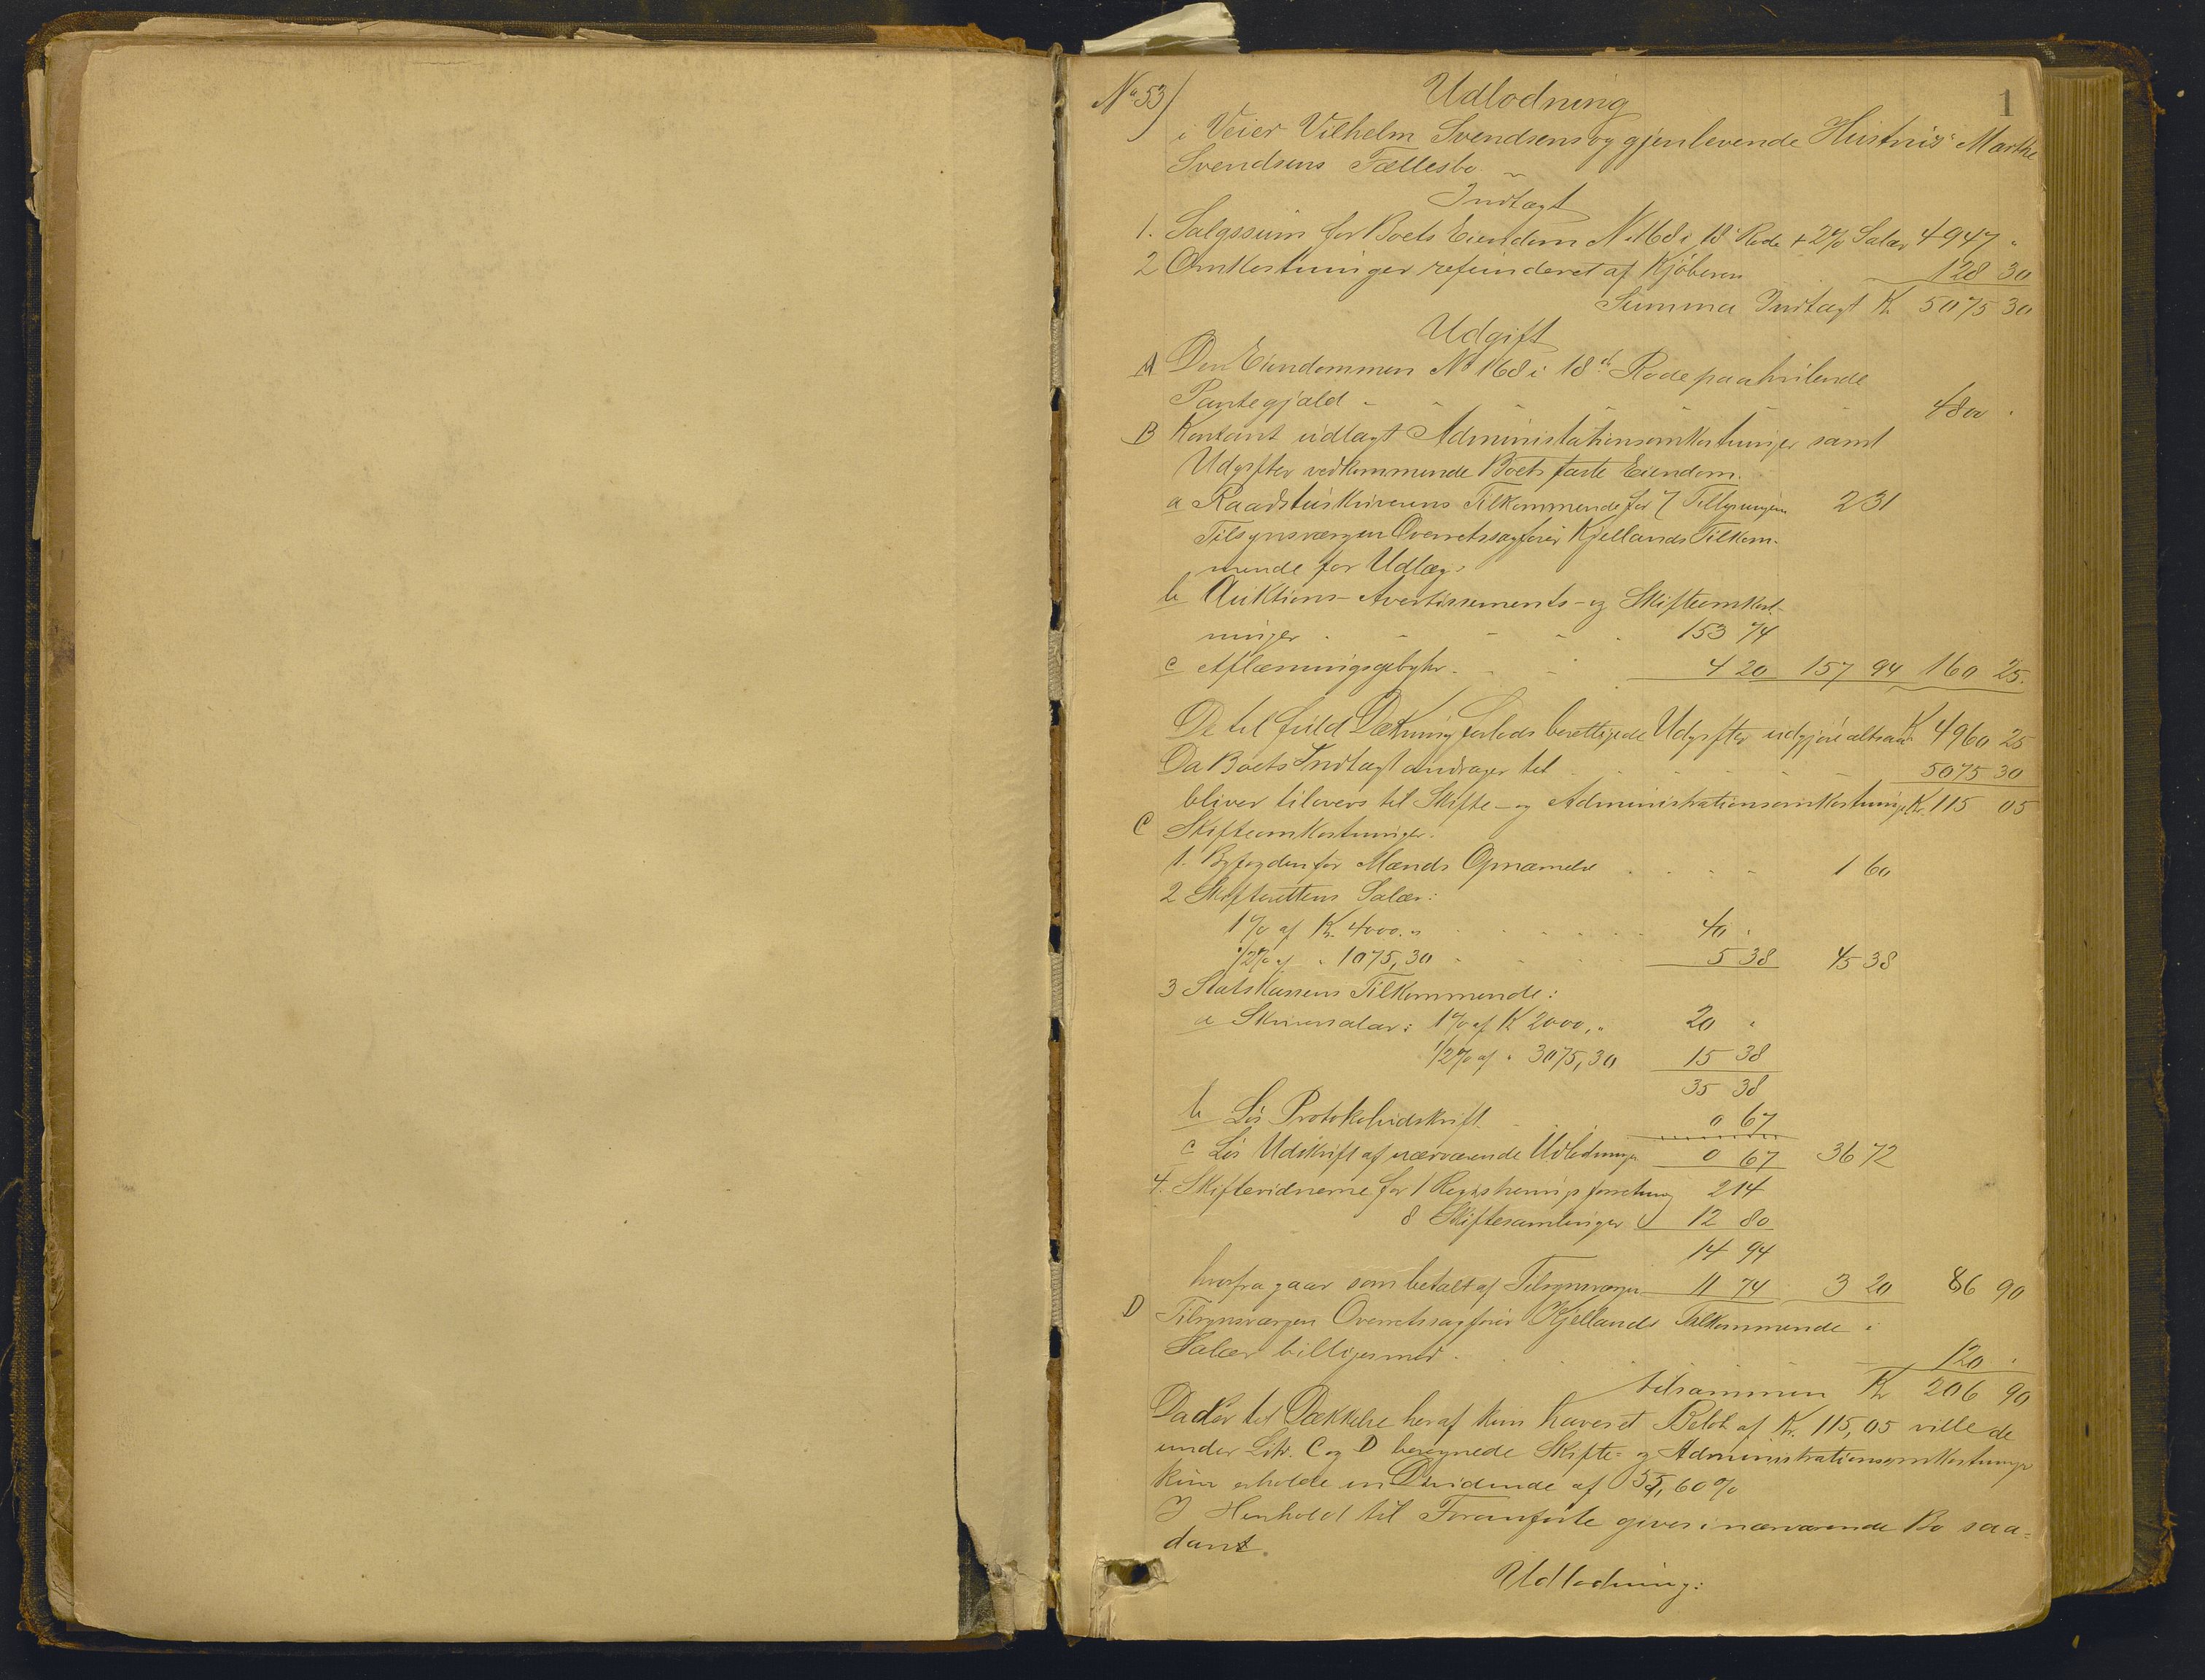 1
No 53)
Udlodning
i Veier Vilhelm Svendsens og gjenlevende Hustrus Marthe
Svendsens Fællesbo
Indtægt
1. Salgssum for Boets Eiendom No 168 i 18de Rode + 2% Salær 4947 "
2 Omkostninger refunderet af Kjøberen 128 30
Summa Indtægt Kr. 5075 30
Udgift
A Den Eiendommen No 168 i 18de Rode paahvilende
Pantegjæld - - - - - - - 4800 "
B Kontant udlagt Administationsomkostninger samt
Udgifter vedkommende Boets faste Eiendom.
a Raadstuskriverens Tilkommende for 7 Tillysninger 2 31
Tilsynsværgen Overretssagfører Kjellands Tilkom-
mende for Udlæg:
b Auktions- Avertissements- og Skifteomkost-
ninger - - - - - 153 74
c Aflæsningsgebyhr - - - 4 20 157 94 160 25.
De til fuld Dækning forlods berettigede Udgifter udgjøre altsaa Kr 4960 25
Da Boets Indtægt andrager til 5075 30
bliver tilovers til Skifte- og Administrationsomkostninger Kr. 115 05
C Skifteomkostninger.
1. Byfogden for Mænds Opnævnelse 1 60
2 Skifterettens Salær:
1% af Kr. 4000. " 40 "
1/2% af " 1075,30 5 38 45 38
3 Statskassens Tilkommende:
a Skriversalær: 1% af Kr 2000, " 20 "
1/2% af " 3075,30 15 38
35 38
b Løs Protokoludskrift 0 67
c Løs Udskrift af nærværende Udlodning 0 67 36 72
4. Skiftevidnerne for 1 Registreringsforretning 2 14
8 Skiftesamlinger 12 80
14 94
hvorfra gaar som betalt af Tilsynsværgen 11 74 3 20 86 90
D Tilsynsværgen Overretssagfører Kjellands Tilkommende i
Salær billiges med 120 "
tilsammen Kr 206 90
Da der til Dækkelse heraf kun haves et Beløb af Kr. 115,05 ville de
under Litr. C og D beregnede Skifte- og Administrationsomkostninger
kun erholde en Dividende af 55,60%
I Henhold til Foranførte gives i nærværende Bo saa=
dant
Udlodning: